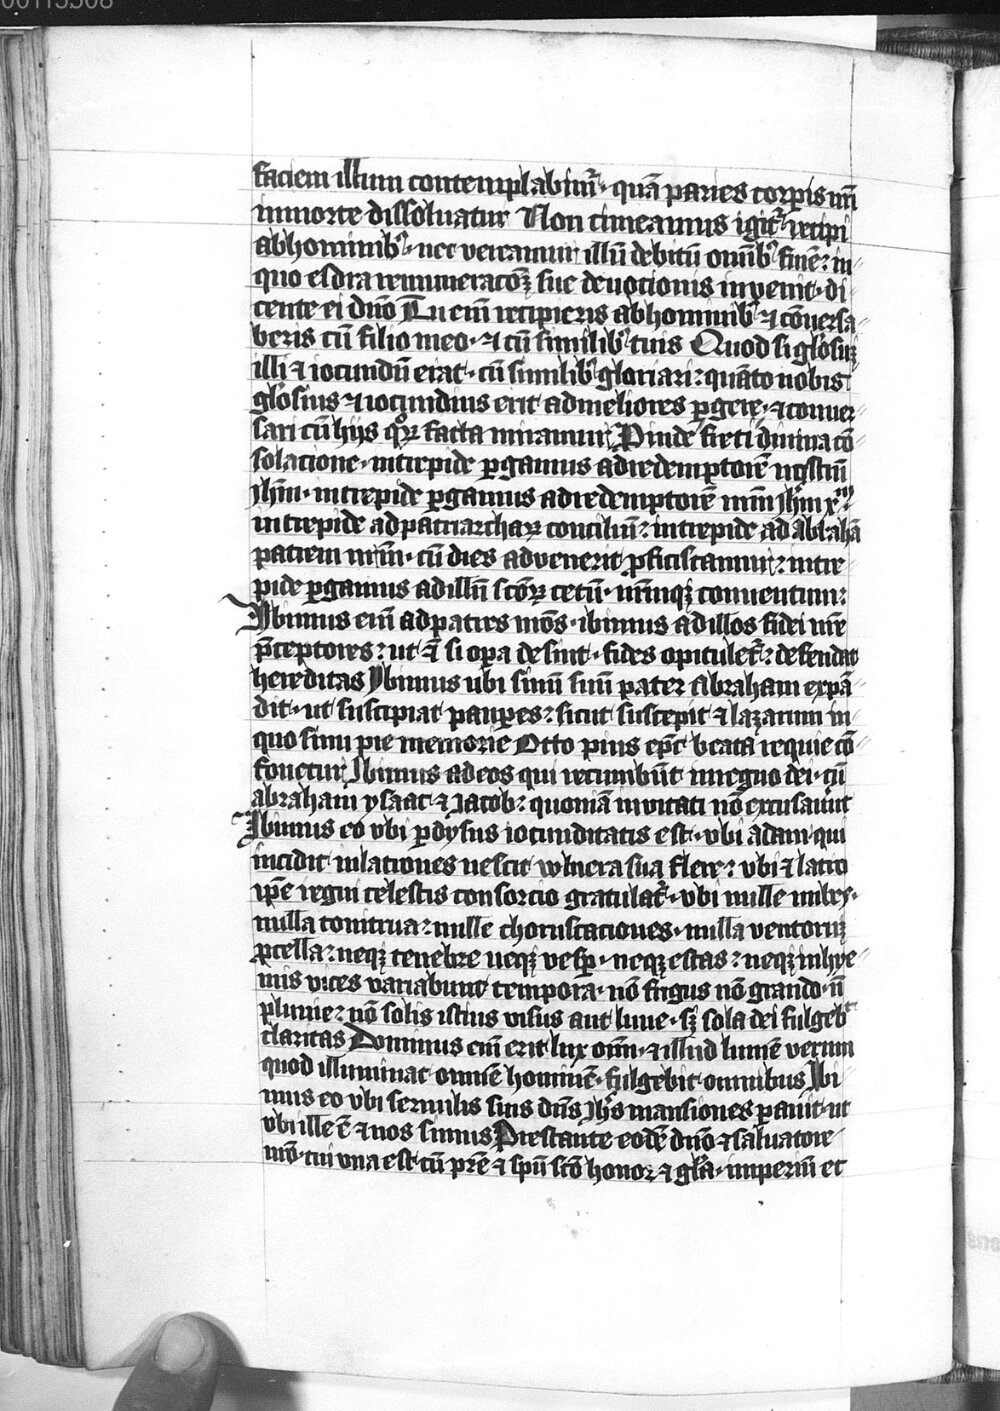 00115508
faciem illum contemplabimr̃ · quã paries corpis nr̃i
in morte dissoluatur Non timeamus igitr̃ recipi
ab hominibꝰ · nec vereamur illũ debitũ om̃ibꝰ finẽ : in
quo esdra remuneracõꝫ sue deuocionis inuenit · di
cente ei dño Tu em̃ recipieris ab hominibꝰ ⁊ cõuersa
beris cũ filio meo · ⁊ cũ similibꝰ tuis Quod si gl̃osuꝫ
illi ⁊ iocundũ erat · cũ similibꝰ gloriari : quãto nobis
gl̃osius ⁊ iocundius erit ad meliores ꝑgere · ⁊ conuer
sari cũ hijs qͦꝝ facta miramur Proinde freti diuina cõ
solacione · intrepide ꝑgamus ad redemptorẽ nostrũ
Jhm̃ · intrepide ꝑgamus ad redemptorẽ nr̃m Jhm̃ xᵐ :
intrepide ad patriarchaꝝ conciliũ : intrepide ad Abrahã
patrem nr̃m · cũ dies aduenerit ꝓficiscamur : intre
pide ꝑgamus ad illũ sc̃oꝝ cetũ · iustorũqꝫ conuentum :
Ybimus em̃ ad patres nr̃os · ibimus ad illos fidei nr̃e
p̃ceptores : ut ⁊ si oꝑa desint · fides opituletr̃ : defendat
hereditas Ybimus ubi sinũ suũ pater Abraham expã
dit · ut suscipiat pauꝑes : sicut suscepit ⁊ lazarum in
quo sinu pie memorie Otto pius ep̃c beata requie cõ
fouetur Ibimus ad eos qui recumbũt in regno dei · cũ
abraham ysaac ⁊ Jacob : quoniã inuitati nõ excusaut̃
Ibimus eo vbi ꝑdysus iocunditatis est · vbi adam qui
incidit in latrones nescit wlnera sua flere : vbi ⁊ latro
ip̃e regni celestis consorcio gratulatr̃ · vbi nulle nubes ·
nulla tonitrua : nulle choruscaciones · nulla ventoruꝫ
ꝓcella : neqꝫ tenebre neqꝫ vesꝑ · neqꝫ estas : neqꝫ in hye
mis vices variabunt tempora · nõ frigus nõ grando · ñ
pluuie : nõ solis istius visus aut lune · sꝫ sola dei fulgebᵗ
claritas Dominus em̃ erit lux om̃i · ⁊ illud lumẽ verum
quod illuminat omnẽ hominẽ · fulgebit omnibus Ibi
mus eo vbi seruulis suis dñs Jhs̃ mansiones parauit · ut
vbi ille ẽ ⁊ nos simus Prestante eodẽ dño ⁊ saluatore
nr̃o · cui vna est cũ pr̃e ⁊ sp̃u sc̃o honor ⁊ gl̃a · imperiũ et